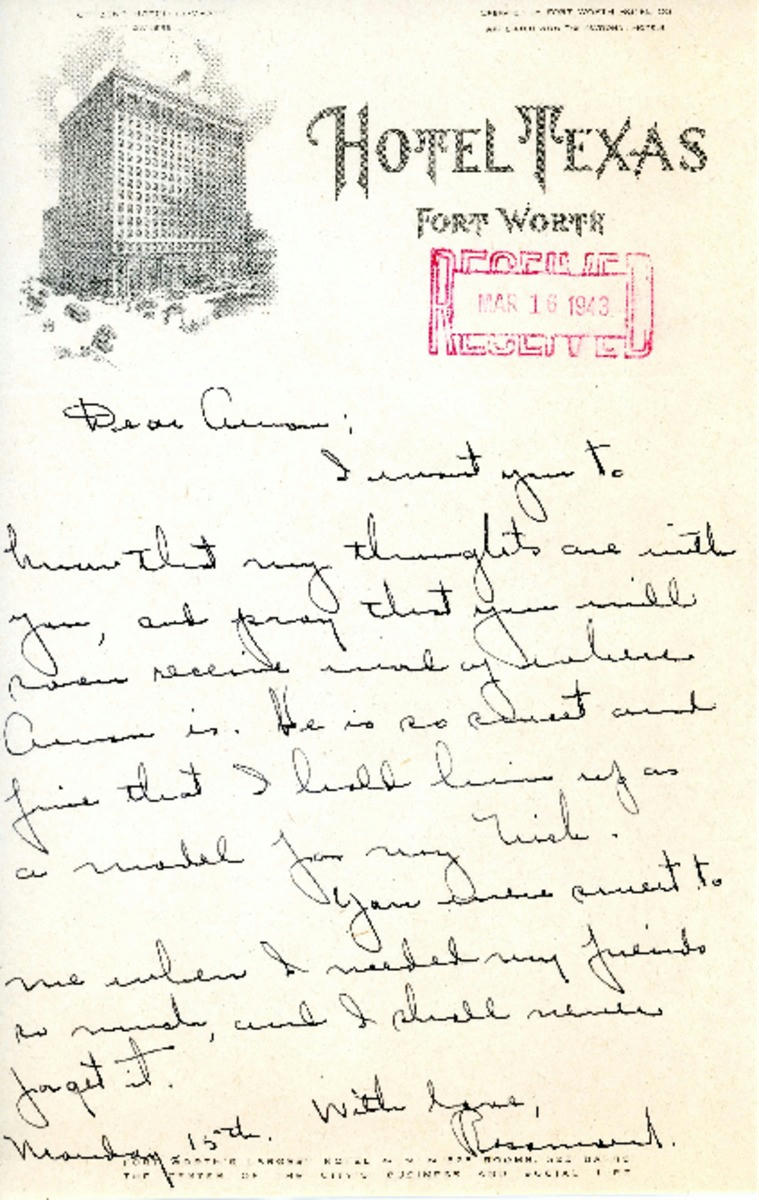 FORT WORTH HOTEL CO
HOTEL TEXAS
FORT WORTH
RECEIVED
MAR 16 1943
RECEIVED
Dear Amon;
I want you to
know that my thoughts are with
you, and pray that you will
soon receive word of where
Amon is. He is so sweet and
fine that I hold him up as
a model for my Nick.
You were sweet to
me when I needed my friends
so much, and I shall never
forget it.
With love,
Monday 15th.
FORT WORTH'S LARGEST HOTEL ROOMS
THE CENTER OF THE CITY'S BUSINESS AND SOCIAL LIFE